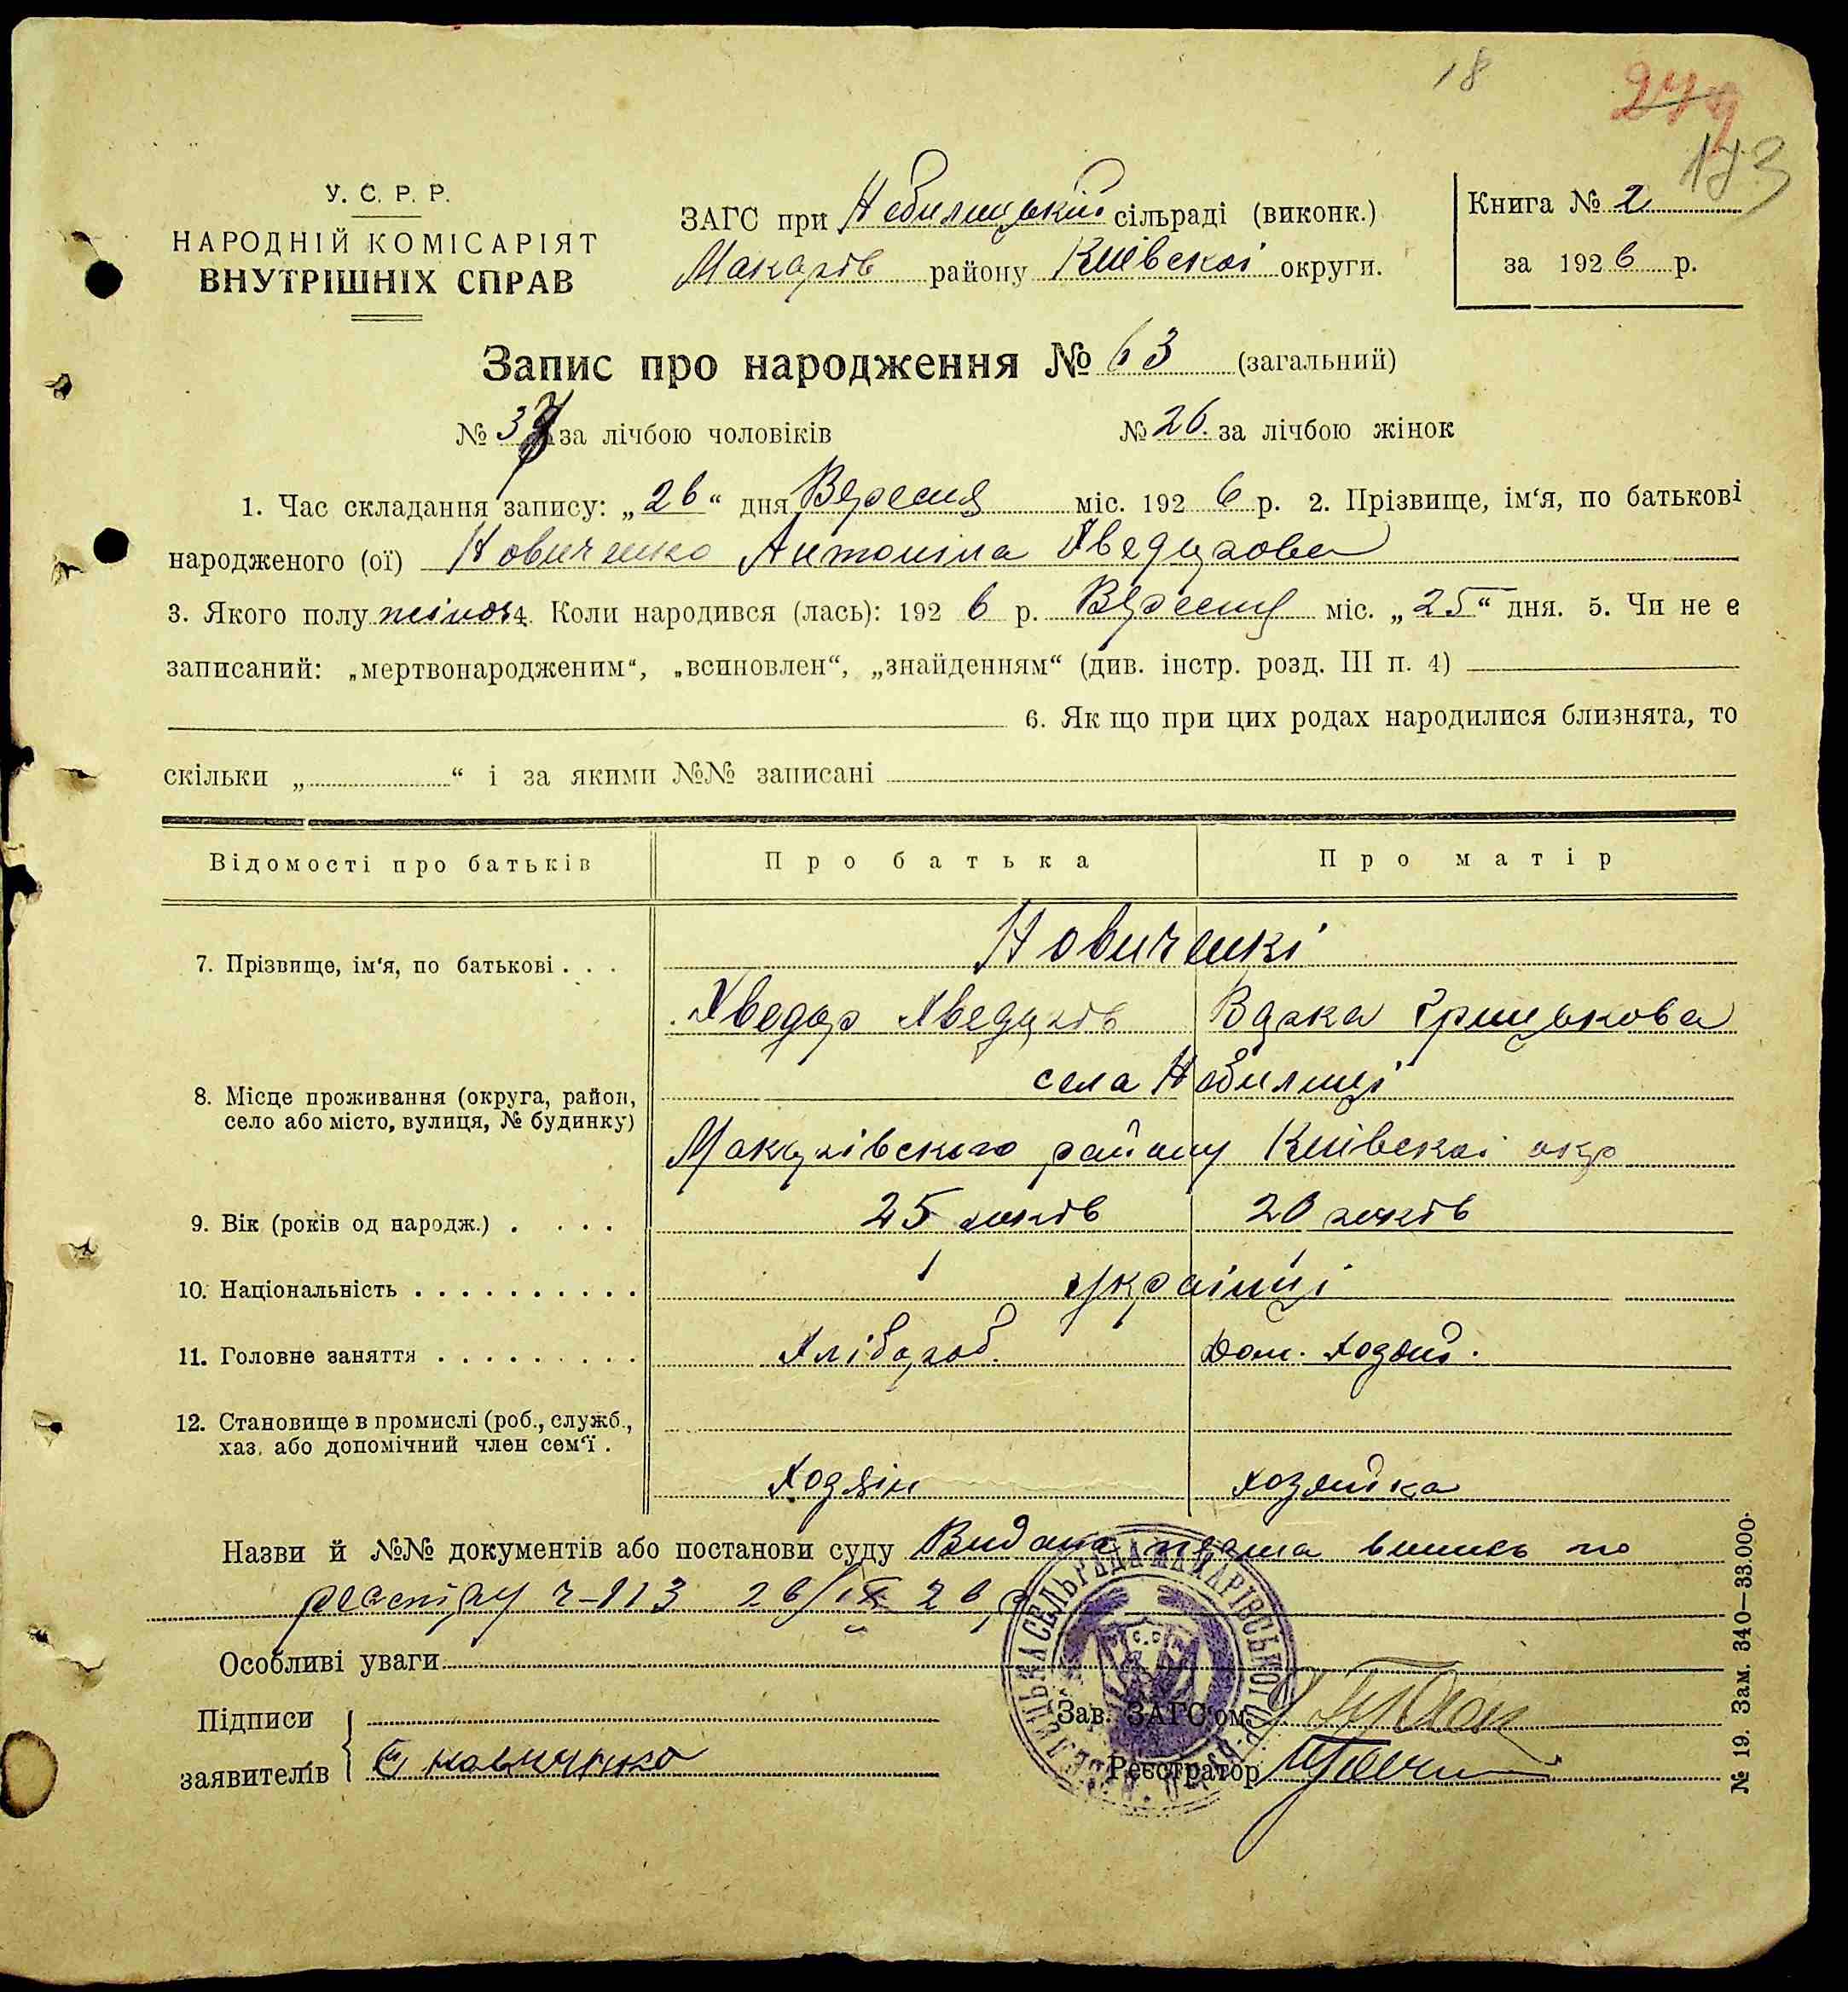 18
279
173
У. С. Р. Р.
НАРОДНІЙ КОМІСАРІЯТ
ВНУТРІШНІХ СПРАВ
ЗАГС при Небилицький сільраді (виконк.)
Макарів району Київскоі округи.
Книга № 2
за 1926 р.
Запис про народження № 63 (загальний)
№ 37 за лічбою чоловіків № 26. за лічбою жінок
1. Час складання запису: „26“ дня Вересня міс. 1926 р. 2. Прізвище, ім‘я, по батькові
народженого (ої) Новиченко Антоніна Хведорова
3. Якого полу жіноч 4. Коли народився (лась): 1926 р. Вересня міс. „25“ дня. 5. Чи не є
записаний: „мертвонародженим“, „всиновлен“, „знайденням“ (див. інстр. розд. III п. 4)
6. Як що при цих родах народилися близнята, то
скільки „ “ і за якими №№ записані
Відомості про батьків Про батька Про матір
7. Прізвище, ім‘я, по батькові . . . Новиченкі
Хведор Хведорів Вярка Грицькова
8. Місце проживання (округа, район,
село або місто, вулиця, № будинку)
села Небилиці
Макарівского району Київскоі окр
9. Вік (років од народж.) . . . . 25 років 20 років
10. Національність . . . . . . . . . . українці
11. Головне заняття . . . . . . . . . Хлібороб. Дом. Хозяй.
12. Становище в промислі (роб., служб.,
хаз. або допомічний член сем‘ї .
Хозяін хозяйка
Назви й №№ документів або постанови суду Видана перша випись по
реєстру ч-113 26/IX 26 р
Особливі уваги
Підписи
заявителів Новиченко
Зав. ЗАГС‘ом
Реєстратор
№ 19. Зам. 340—33.000.